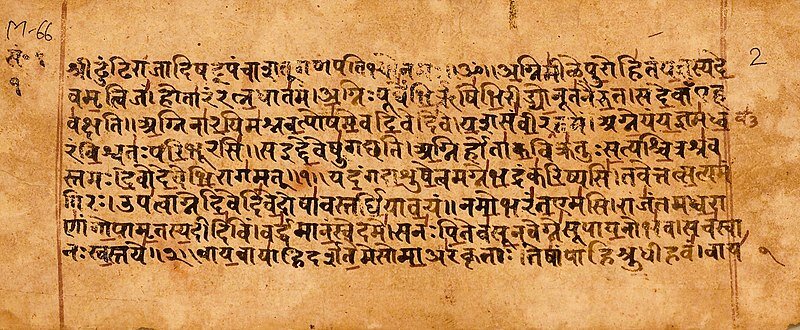 M-66
2
श्री ढुंढिराजादिषट्पंचाश गणपतिभ्यो ॥ॐ॥ अग्निमीळे पुरोहितं यज्ञस्य दे
वमृत्विजं। होतारं रत्नधातमं। अग्निः पूर्वेभिर्ऋषिभिरीड्यो नूतनैरुत। स देवाँ एह
वक्षति॥ अग्निना रयिमश्नवत्पोषमेव दिवेदिवे। यशसं वीरवत्तमं। अग्ने यं यज्ञमध्व
रं विश्वतः परिभूरसि॥ स इद्देवेषु गच्छति। अग्निर्होता कविक्रतुः सत्यश्चित्रश्रव
स्तमः। देवो देवेभिरागमत्॥१॥ यदंग दाशुषे त्वमग्ने भद्रं करिष्यसि। तवेत्तत्सत्यमं
गिरः। उप त्वाग्ने दिवेदिवे दोषावस्तर्धिया वयं॥ नमो भरंत एमसि। राजंतमध्वरा
णां गोपामृतस्य दीदिविं। वर्द्धमानं स्वे दमे। स नः पितेव सूनवेग्ने सूपायनो भव। सचस्वा
नः स्वस्तये॥२॥ वायवायाहि दर्शतेमे सोमा अरंकृताः। तेषां पाहि श्रुधी हवं। वाय